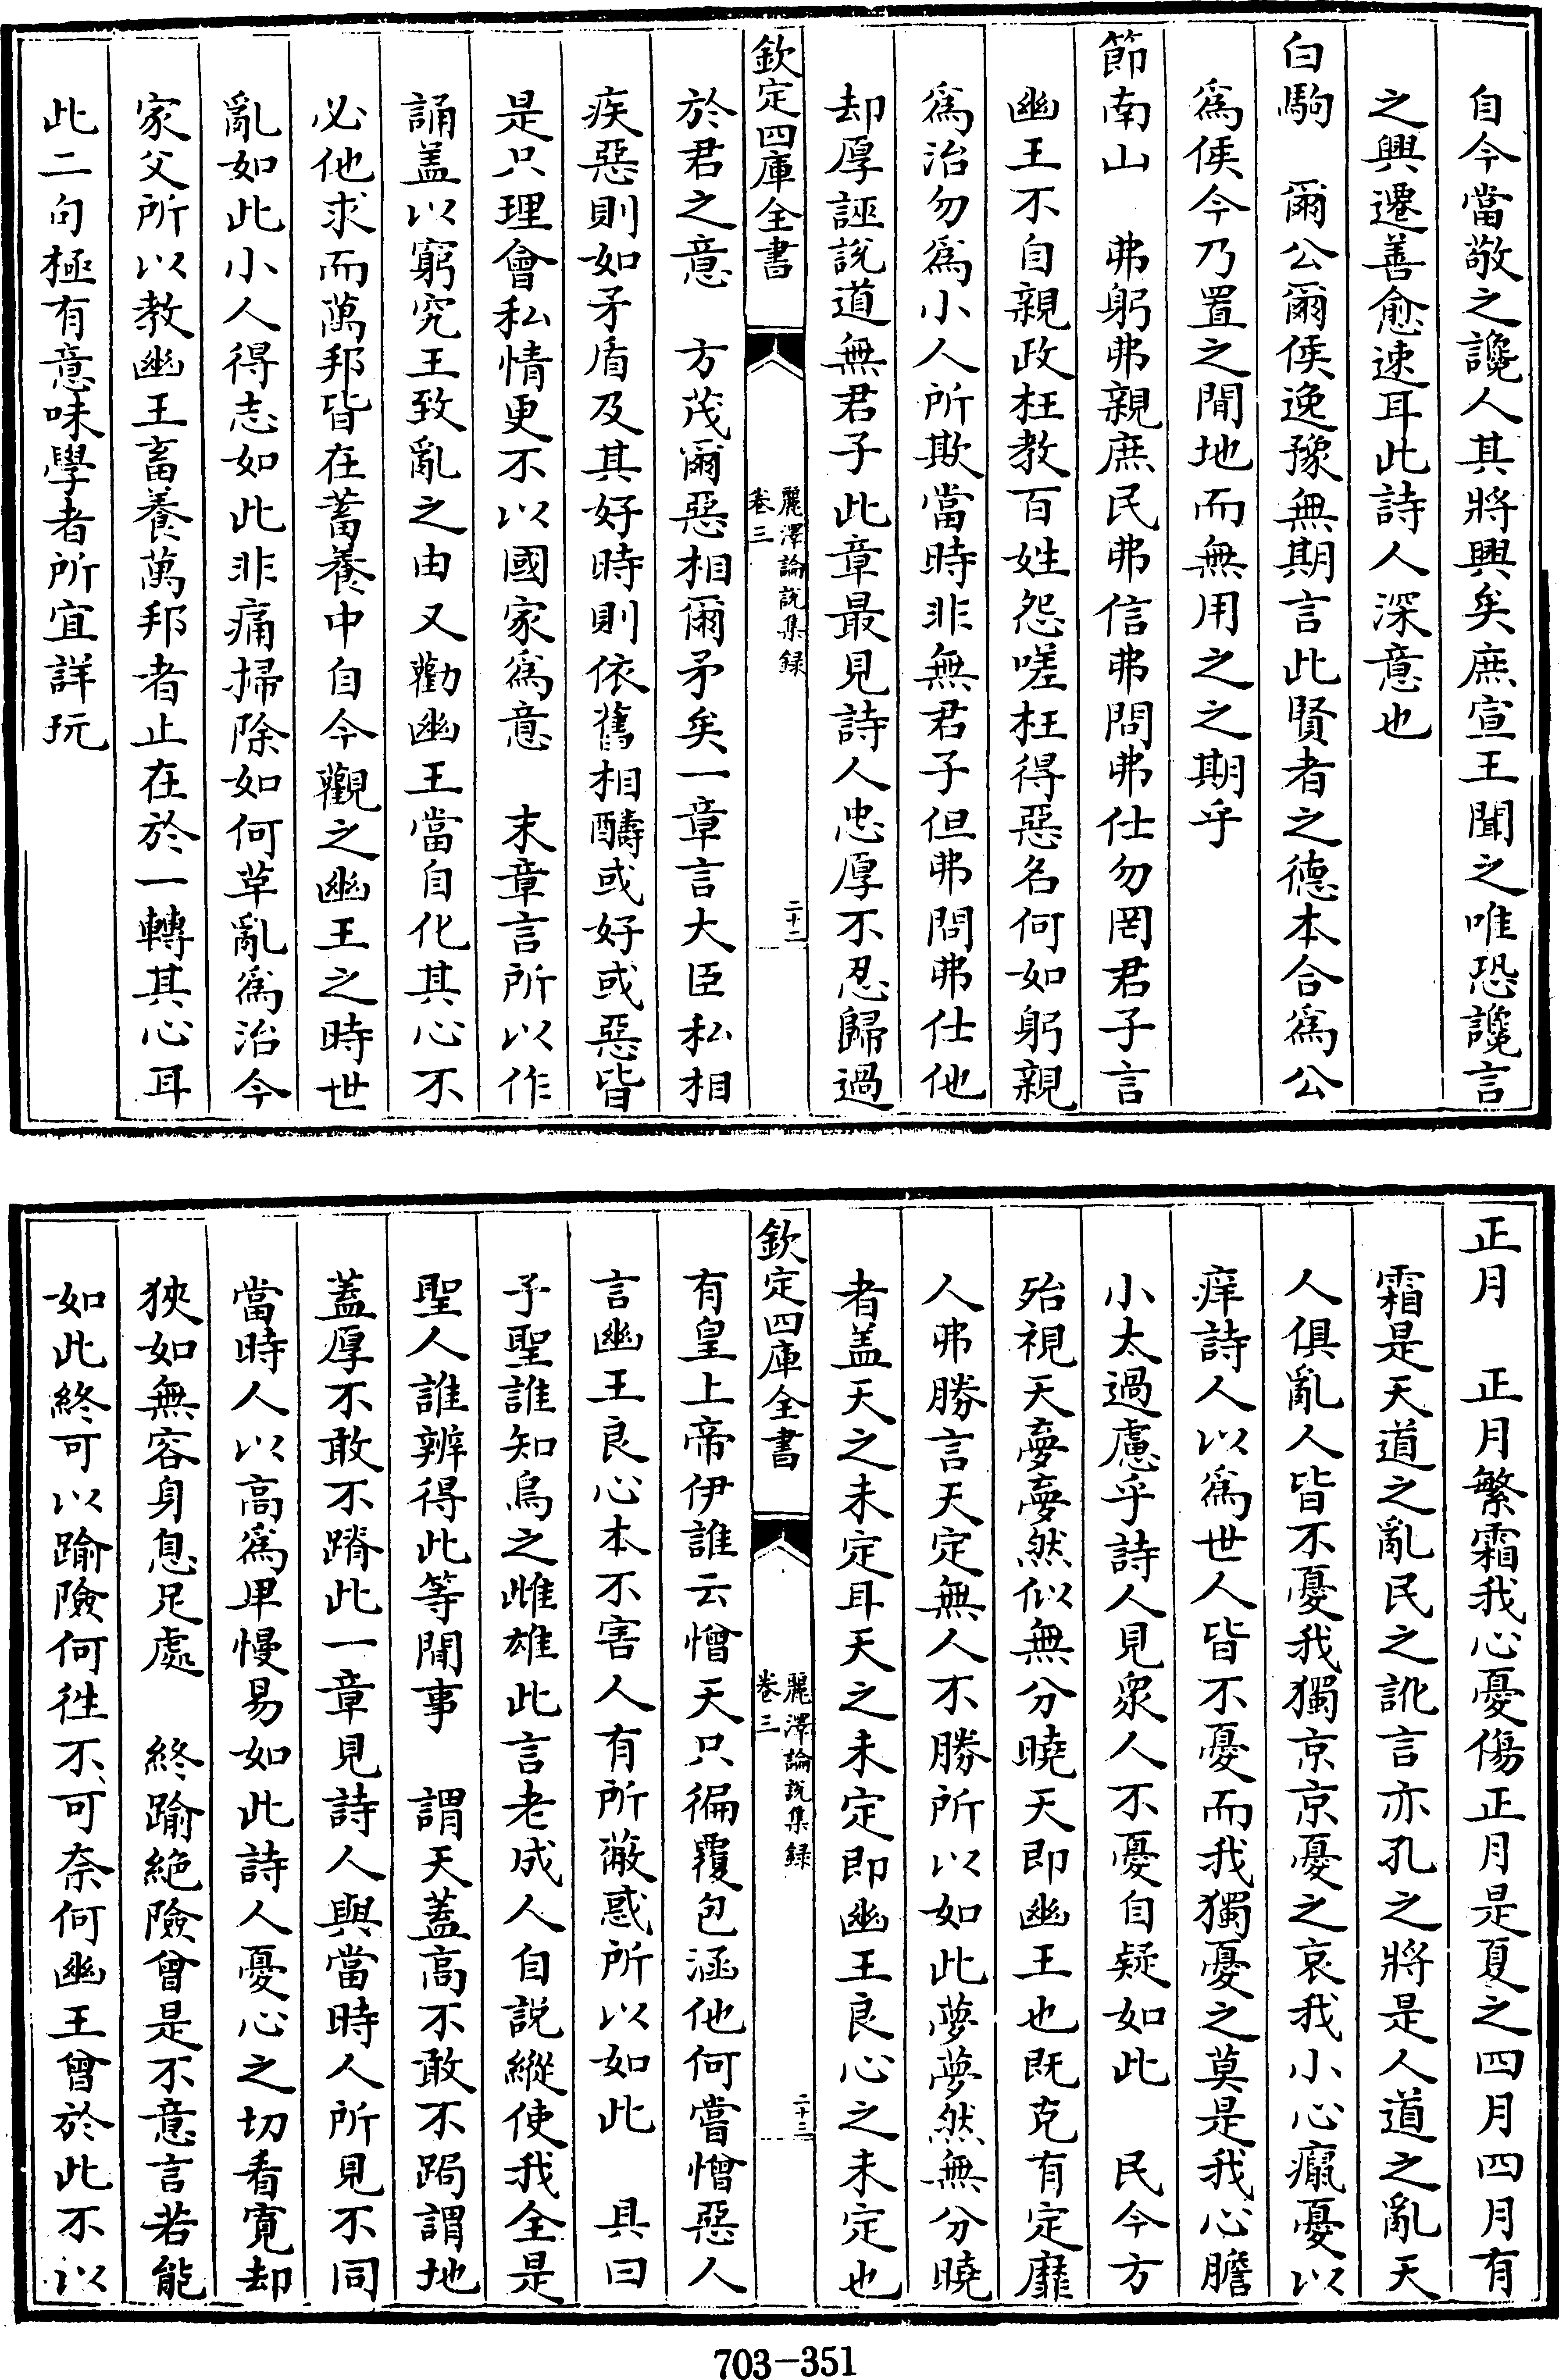 自今當敬之讒人其將興矣庶宣王聞之唯恐讒言
之興遷善愈速耳此詩人深意也
白駒　爾公爾侯逸豫無期言此賢者之德本合為公
為侯今乃置之閒地而無用之之期乎
節南山　弗躬弗親庶民弗信弗問弗仕勿罔君子言
幽王不自親政枉教百姓怨嗟枉得惡名何如躬親
為治勿為小人所欺當時非無君子但弗問弗仕他
却厚誣說道無君子此章最見詩人忠厚不忍歸過
欽定四庫全書
麗澤論說集録
卷三
二十二
於君之意　方茂爾惡相爾矛矣一章言大臣私相
疾惡則如矛盾及其好時則依舊相醻或好或惡皆
是只理會私情更不以國家為意　末章言所以作
誦盖以窮究王致亂之由又勸幽王當自化其心不
必他求而萬邦皆在蓄養中自今觀之幽王之時世
亂如此小人得志如此非痛掃除如何革亂為治今
家父所以教幽王畜養萬邦者止在於一轉其心耳
此二句極有意味學者所宜詳玩
正月　正月繁霜我心憂傷正月是夏之四月四月有
霜是天道之亂民之訛言亦孔之將是人道之亂天
人俱亂人皆不憂我獨京京憂之哀我小心癙憂以
痒詩人以為世人皆不憂而我獨憂之莫是我心膽
小太過慮乎詩人見衆人不憂自疑如此　民今方
殆視天夢夢然似無分曉天即幽王也既克有定靡
人弗勝言天定無人不勝所以如此夢夢然無分曉
者盖天之未定耳天之未定即幽王良心之未定也
欽定四庫全書
麗澤論說集録
卷三
二十三
有皇上帝伊誰云憎天只徧覆包涵他何嘗憎惡人
言幽王良心本不害人有所蔽惑所以如此　具曰
予聖誰知烏之雌雄此言老成人自說縱使我全是
聖人誰辨得此等閒事　謂天蓋高不敢不跼謂地
蓋厚不敢不蹐此一章見詩人與當時人所見不同
當時人以高為卑慢易如此詩人憂心之切看寛却
狹如無容身息足處　終踰絶險曾是不意言若能
如此終可以踰險何徃不可奈何幽王曾於此不以
703-351